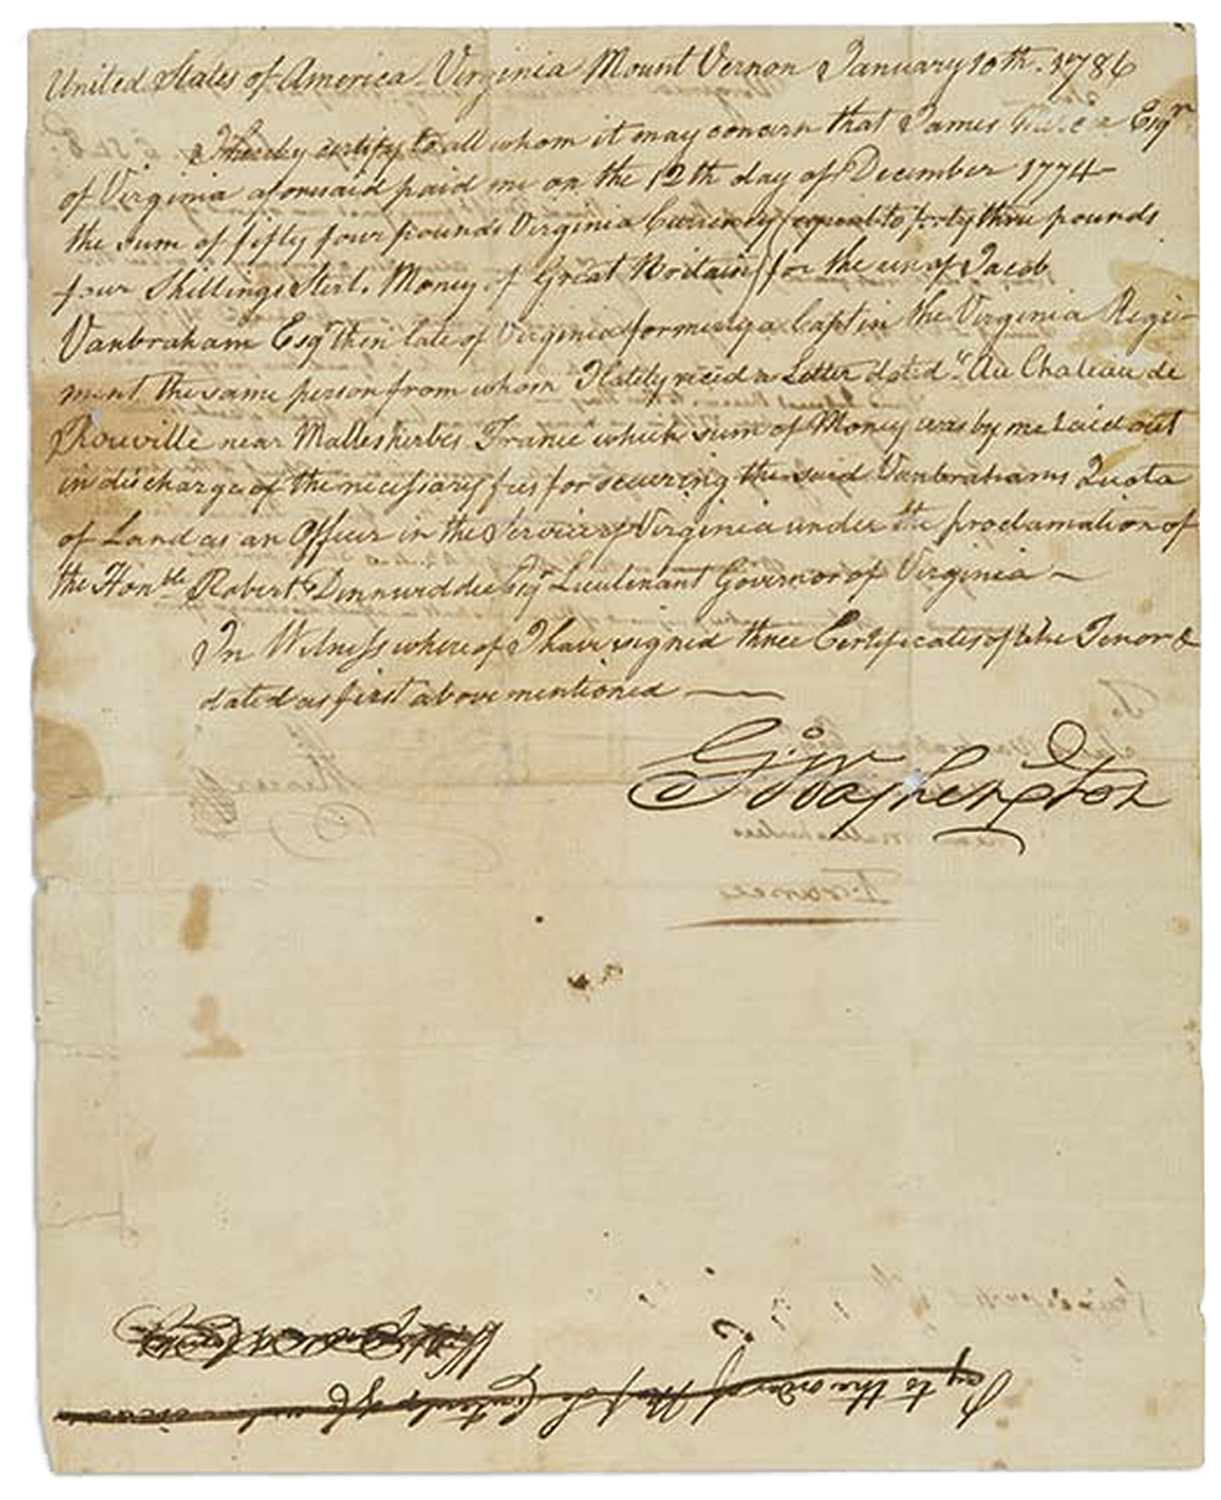 United States of America Virginia Mount Vernon January 10th. 1786
I hereby certify to all whom it may concern that James Esqr
of Virginia aforesaid paid me on the 12th day of December 1774
the sum of fifty four pounds Virginia Currency (equal to forty three pounds
four Shillings Sterl. Money of Great Britain) for the use of Jacob
Vanbraham Esqr then late of Virginia formerly a Capt in the Virginia Regi-
ment the same person from whom I lately recied a Letter dated "Au Chateau de
Rouville near Malleskerbes France which sum of Money was by me Laid out
in discharge of the necessary fees for securing the said Vanbrahams Quota
of Land as an Officer in the Service of Virginia under the proclamation of
the Honble Robert Dinnwiddie Esqr Lieutenant Governor of Virginia —
In Witness where of I have signed three Certificates of the Tenor &
dated as first above mentioned —
Go: Washington
France
Pay to the order of